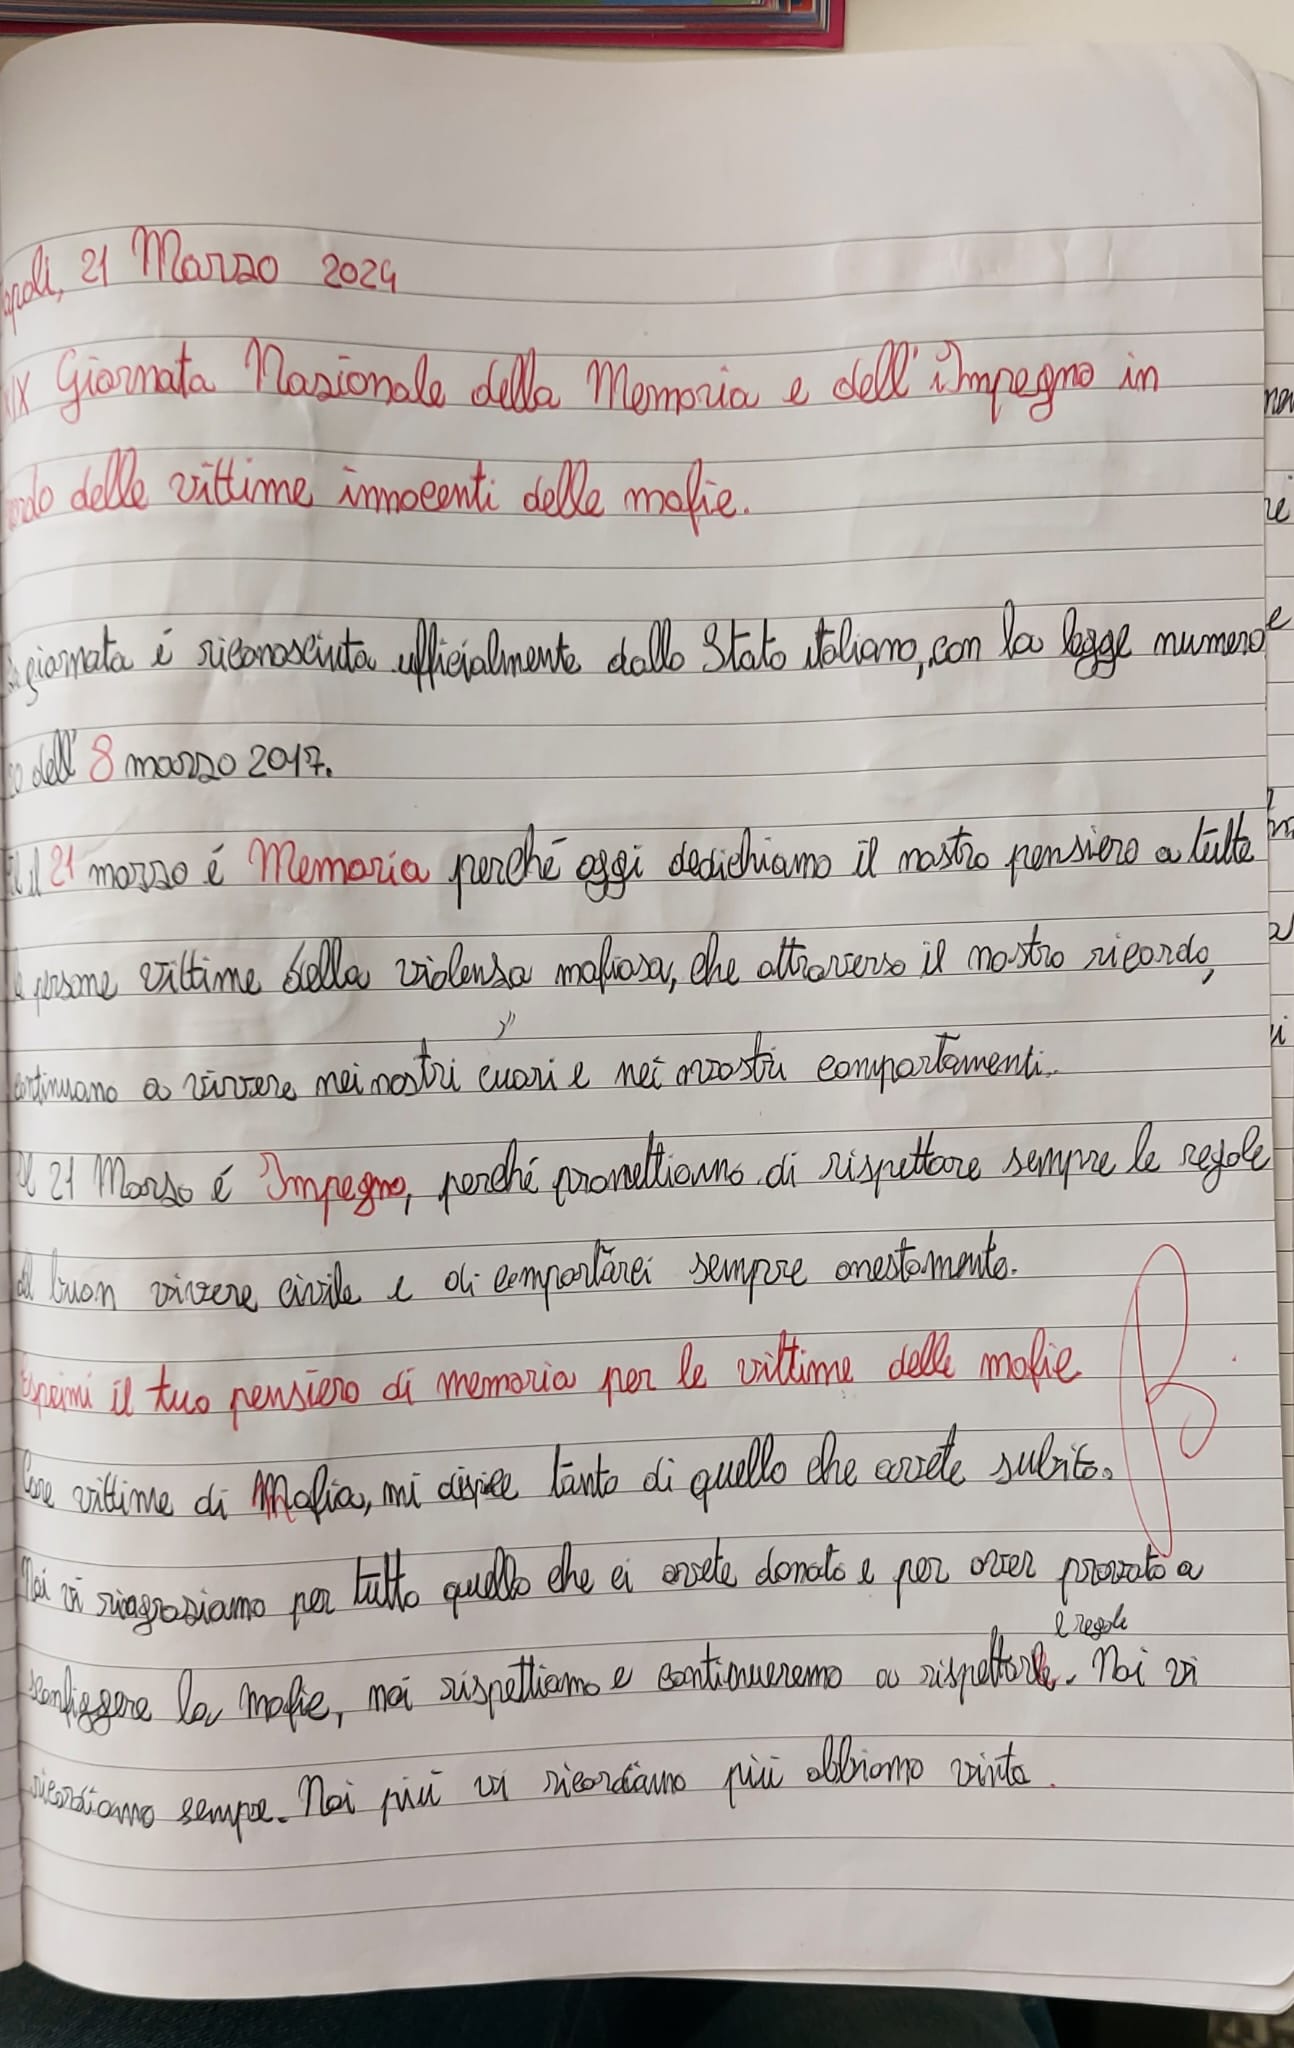 apoli, 21 Marzo 2024
XIX Giornata Nazionale della Memoria e dell'Impegno in
ordo delle vittime innocenti delle mafie.
giornata é riconosciuta ufficialmente dallo Stato italiano, con la legge numero e
dell' 8 marzo 2017.
il 21 marzo é Memoria perché oggi dedichiamo il nostro pensiero a tutte
persone vittime della violenza mafiosa, che attraverso il nostro ricordo,
continuano a vivere nei nostri cuori e nei nostri comportamenti.
Il 21 Marzo é Impegno, perché promettiamo di rispettare sempre le regole
del buon vivere civile e di comportarci sempre onestamente.
Esprimi il tuo pensiero di memoria per le vittime delle mafie
Care vittime di Mafia, mi dispice tanto di quello che avete subito.
Noi vi riagraziamo per tutto quello che ci avete donato e per aver provato a
sconfiggere la mafie, noi rispettiamo e continueremo a rispettare l regole. Noi vi
ricordiamo sempre. Noi piú vi ricordiamo piú abbiamo vinto.